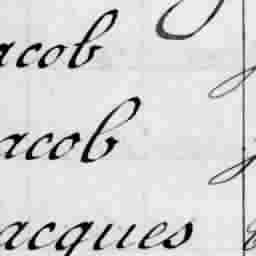 acob
acob
acques